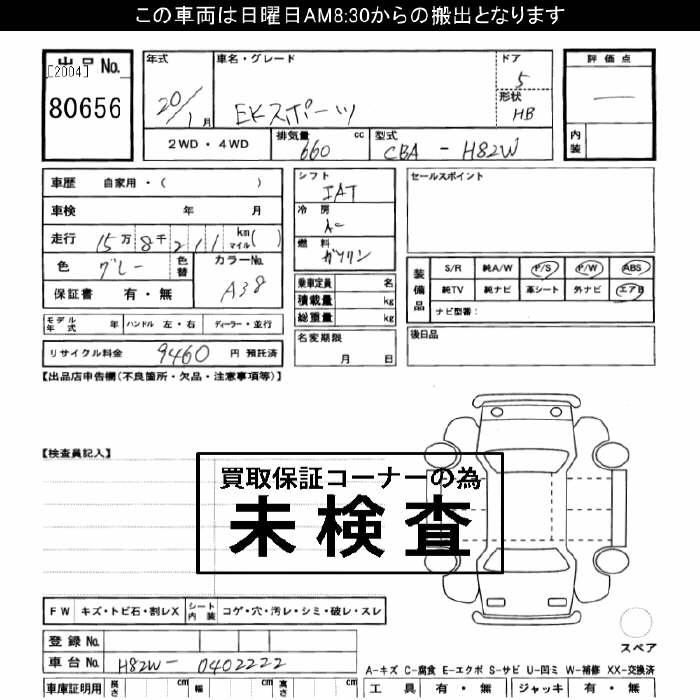 この車両は日曜日AM8:30からの搬出となります
出品No.
[2004]
80656
年式
20/1月
車名・グレード
EKスポーツ
ドア
5
形状
HB
評価点
―
2WD・4WD
排気量
660 cc
型式
CBA - H82W
内装
車歴 自家用・( )
車検 年 月
走行 15万8千211 km マイル( )
色 グレー 色替
カラーNo.
A38
保証書 有・無
シフト
IAT
冷房
燃料
ガソリン
乗車定員 名
積載量 kg
総重量 kg
セールスポイント
装備品
S/R 純A/W P/S P/W ABS
純TV 純ナビ 革シート 外ナビ エアB
ナビ型番:
モデル年式 年 ハンドル 左・右 ディーラー・並行
リサイクル料金 9460 円 預託済
名変期限
月 日
後日品
【出品店申告欄(不良箇所・欠品・注意事項等)】
【検査員記入】
買取保証コーナーの為
未検査
FW キズ・トビ石・割レX シート内装 コゲ・穴・汚レ・シミ・破レ・スレ
登録No.
車台No. H82W- 0402222
車庫証明用 長さ cm 幅 cm 高さ cm
スペア
A-キズ C-腐食 E-エクボ S-サビ U-凹ミ W-補修 XX-交換済
工具 有・無 ジャッキ 有・無